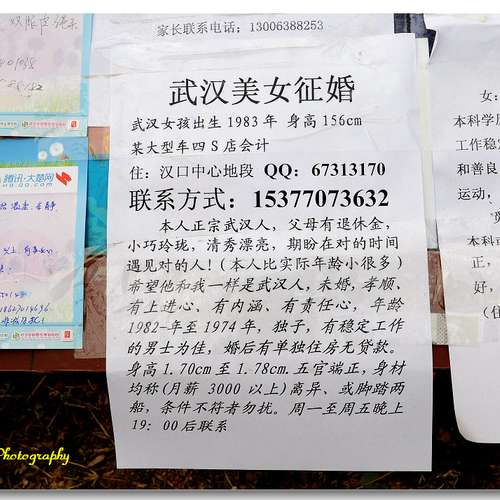 家长联系电话：13006388253
武汉美女征婚
武汉女孩出生 1983 年 身高 156cm
某大型车四 S 店会计
住：汉口中心地段 QQ：67313170
联系方式：15377073632
本人正宗武汉人，父母有退休金，
小巧玲珑，清秀漂亮，期盼在对的时间
遇见对的人！(本人比实际年龄小很多)
希望他和我一样是武汉人，未婚，孝顺、
有上进心、有内涵、有责任心，年龄
1982-年至 1974 年，独子，有稳定工作
的男士为佳，婚后有单独住房无贷款。
身高 1.70cm 至 1.78cm. 五官端正，身材
均称(月薪 3000 以上)离异、或脚踏两
船，条件不符者勿扰。周一至周五晚上
19：00 后联系
腾讯·大楚网
女：
本科学历
工作稳定
和善良
运动，
本科
正，
好，
(住
Photography